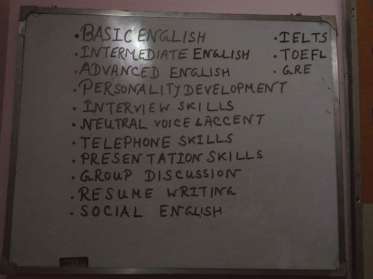 • BASIC ENGLISH
• INTERMEDIATE ENGLISH
• ADVANCED ENGLISH
• PERSONALITY DEVELOPMENT
• INTERVIEW SKILLS
• NEUTRAL VOICE & ACCENT
• TELEPHONE SKILLS
• PRESENTATION SKILLS
• GROUP DISCUSSION
• RESUME WRITING
• SOCIAL ENGLISH
• IELTS
• TOEFL
• GRE